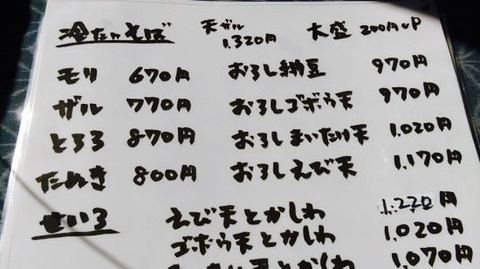 冷たいそば 天ザル 1.320円 大盛 200円UP
モリ 670円 おろし納豆 970円
ザル 770円 おろしゴボウ天 970円
とろろ 870円 おろしまいたけ天 1.020円
たぬき 800円 おろしえび天 1.170円
せいろ えび天とかしわ 1.220円
ゴボウ天とかしわ 1.020円
天とかしわ 1.070円